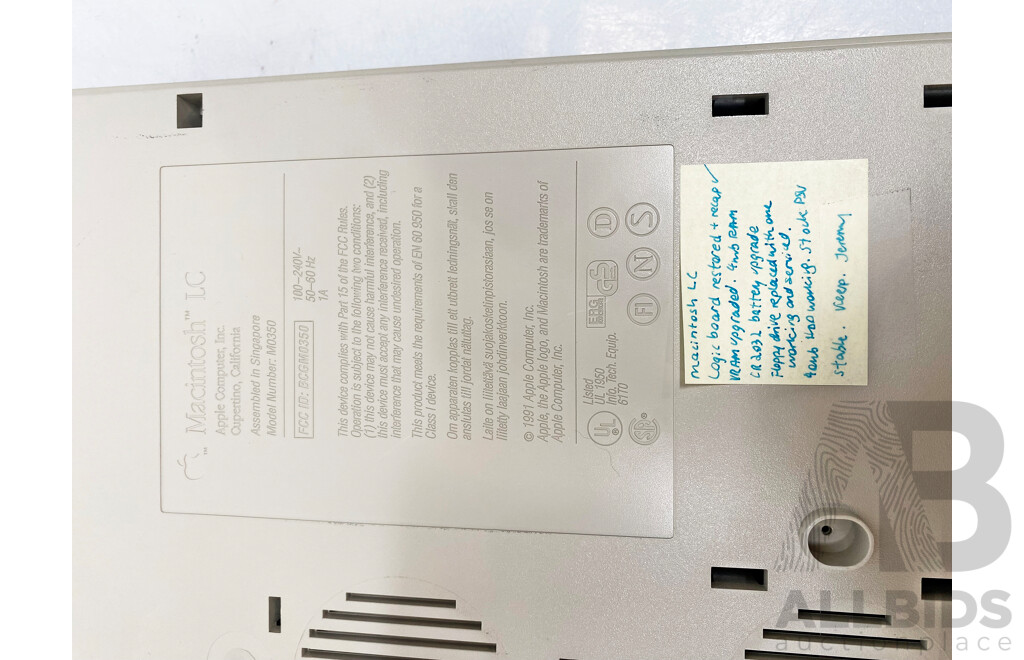 Macintosh™ LC
Apple Computer, Inc.
Cupertino, California
Assembled in Singapore
Model Number: M0350
100-240V~
50-60 Hz
1A
FCC ID: BCGM0350
This device complies with Part 15 of the FCC Rules.
Operation is subject to the following two conditions:
(1) this device may not cause harmful interference, and (2)
this device must accept any interference received, including
interference that may cause undesired operation.
This product meets the requirements of EN 60 950 for a
Class I device.
Om apparaten kopplas till ett utbrett ledningsnät, skall den
anslutas till jordat nätuttag.
Laite on liitettävä suojakosketinpistorasiaan, jos se on
liitetty laajaan johdinverkkoon.
© 1991 Apple Computer, Inc.
Apple, the Apple logo, and Macintosh are trademarks of
Apple Computer, Inc.
UL
Listed
UL 1950
Info. Tech. Equip.
61T0
ERG
GS
D
FI
N
S
Macintosh LC
Logic board restored + recap ✓
VRAM upgraded. 4mb RAM
CR2032 battery upgrade
Floppy drive replaced with one
working and serviced.
40mb HDD working. Stock PSU
Jeremy
AB
ALLBIDS
auctionplace